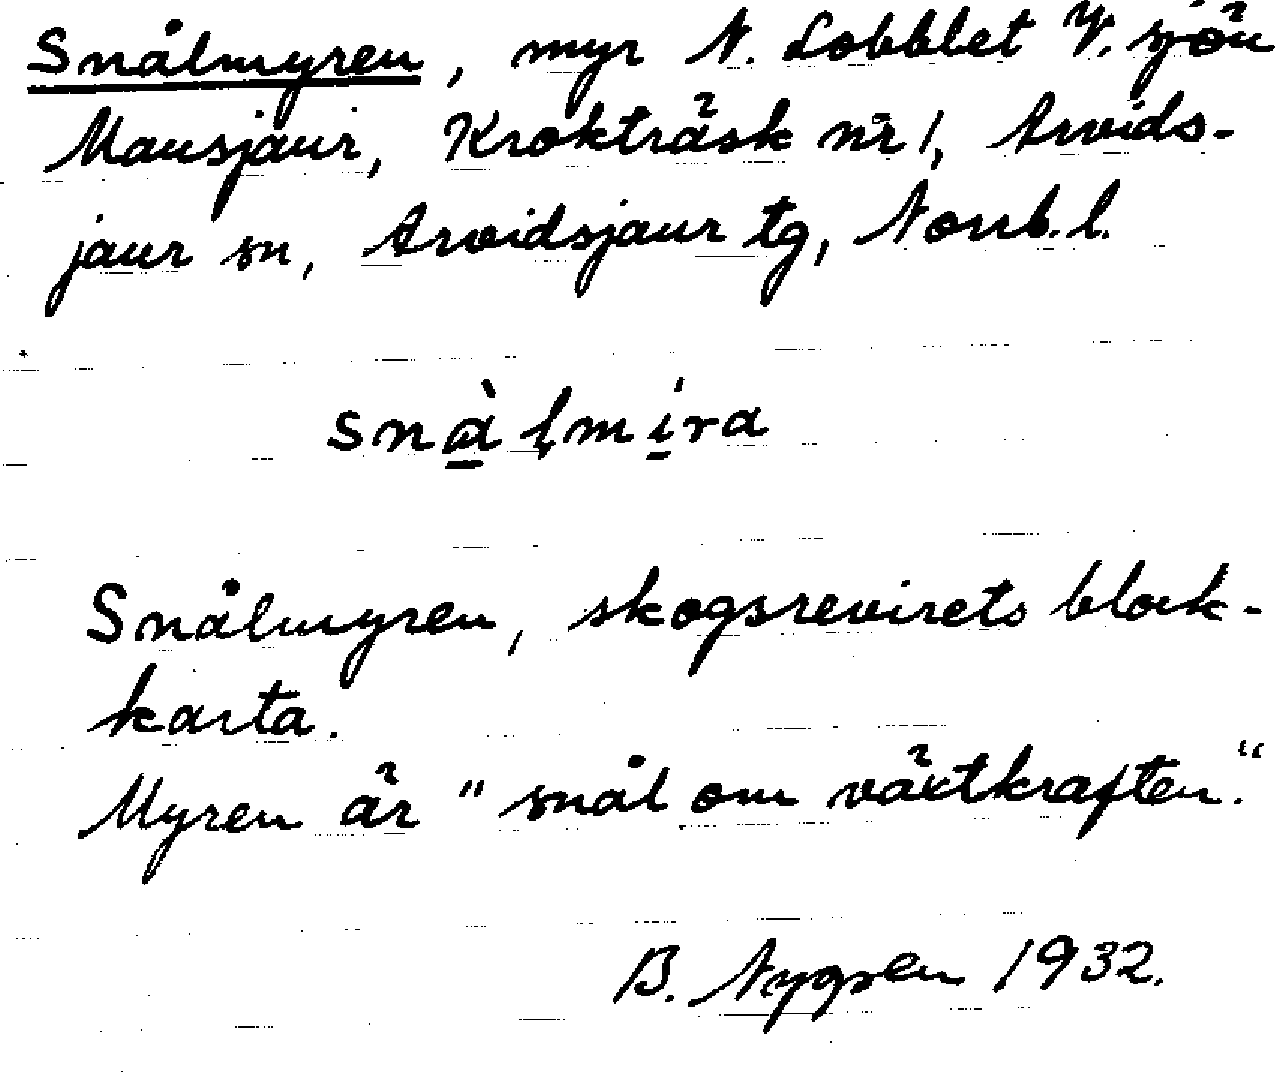 Snålmyren, myr N. Lobblet V. sjön
Mausjaur, Krokträsk nr 1, Arvids-
jaur sn, Arvidsjaur tg, Norrb. l.
snàḷmi̱ra
Snålmyren, skogsrevirets block-
karta.
Myren är "snål om växtkraften."
B. Nygren 1932.